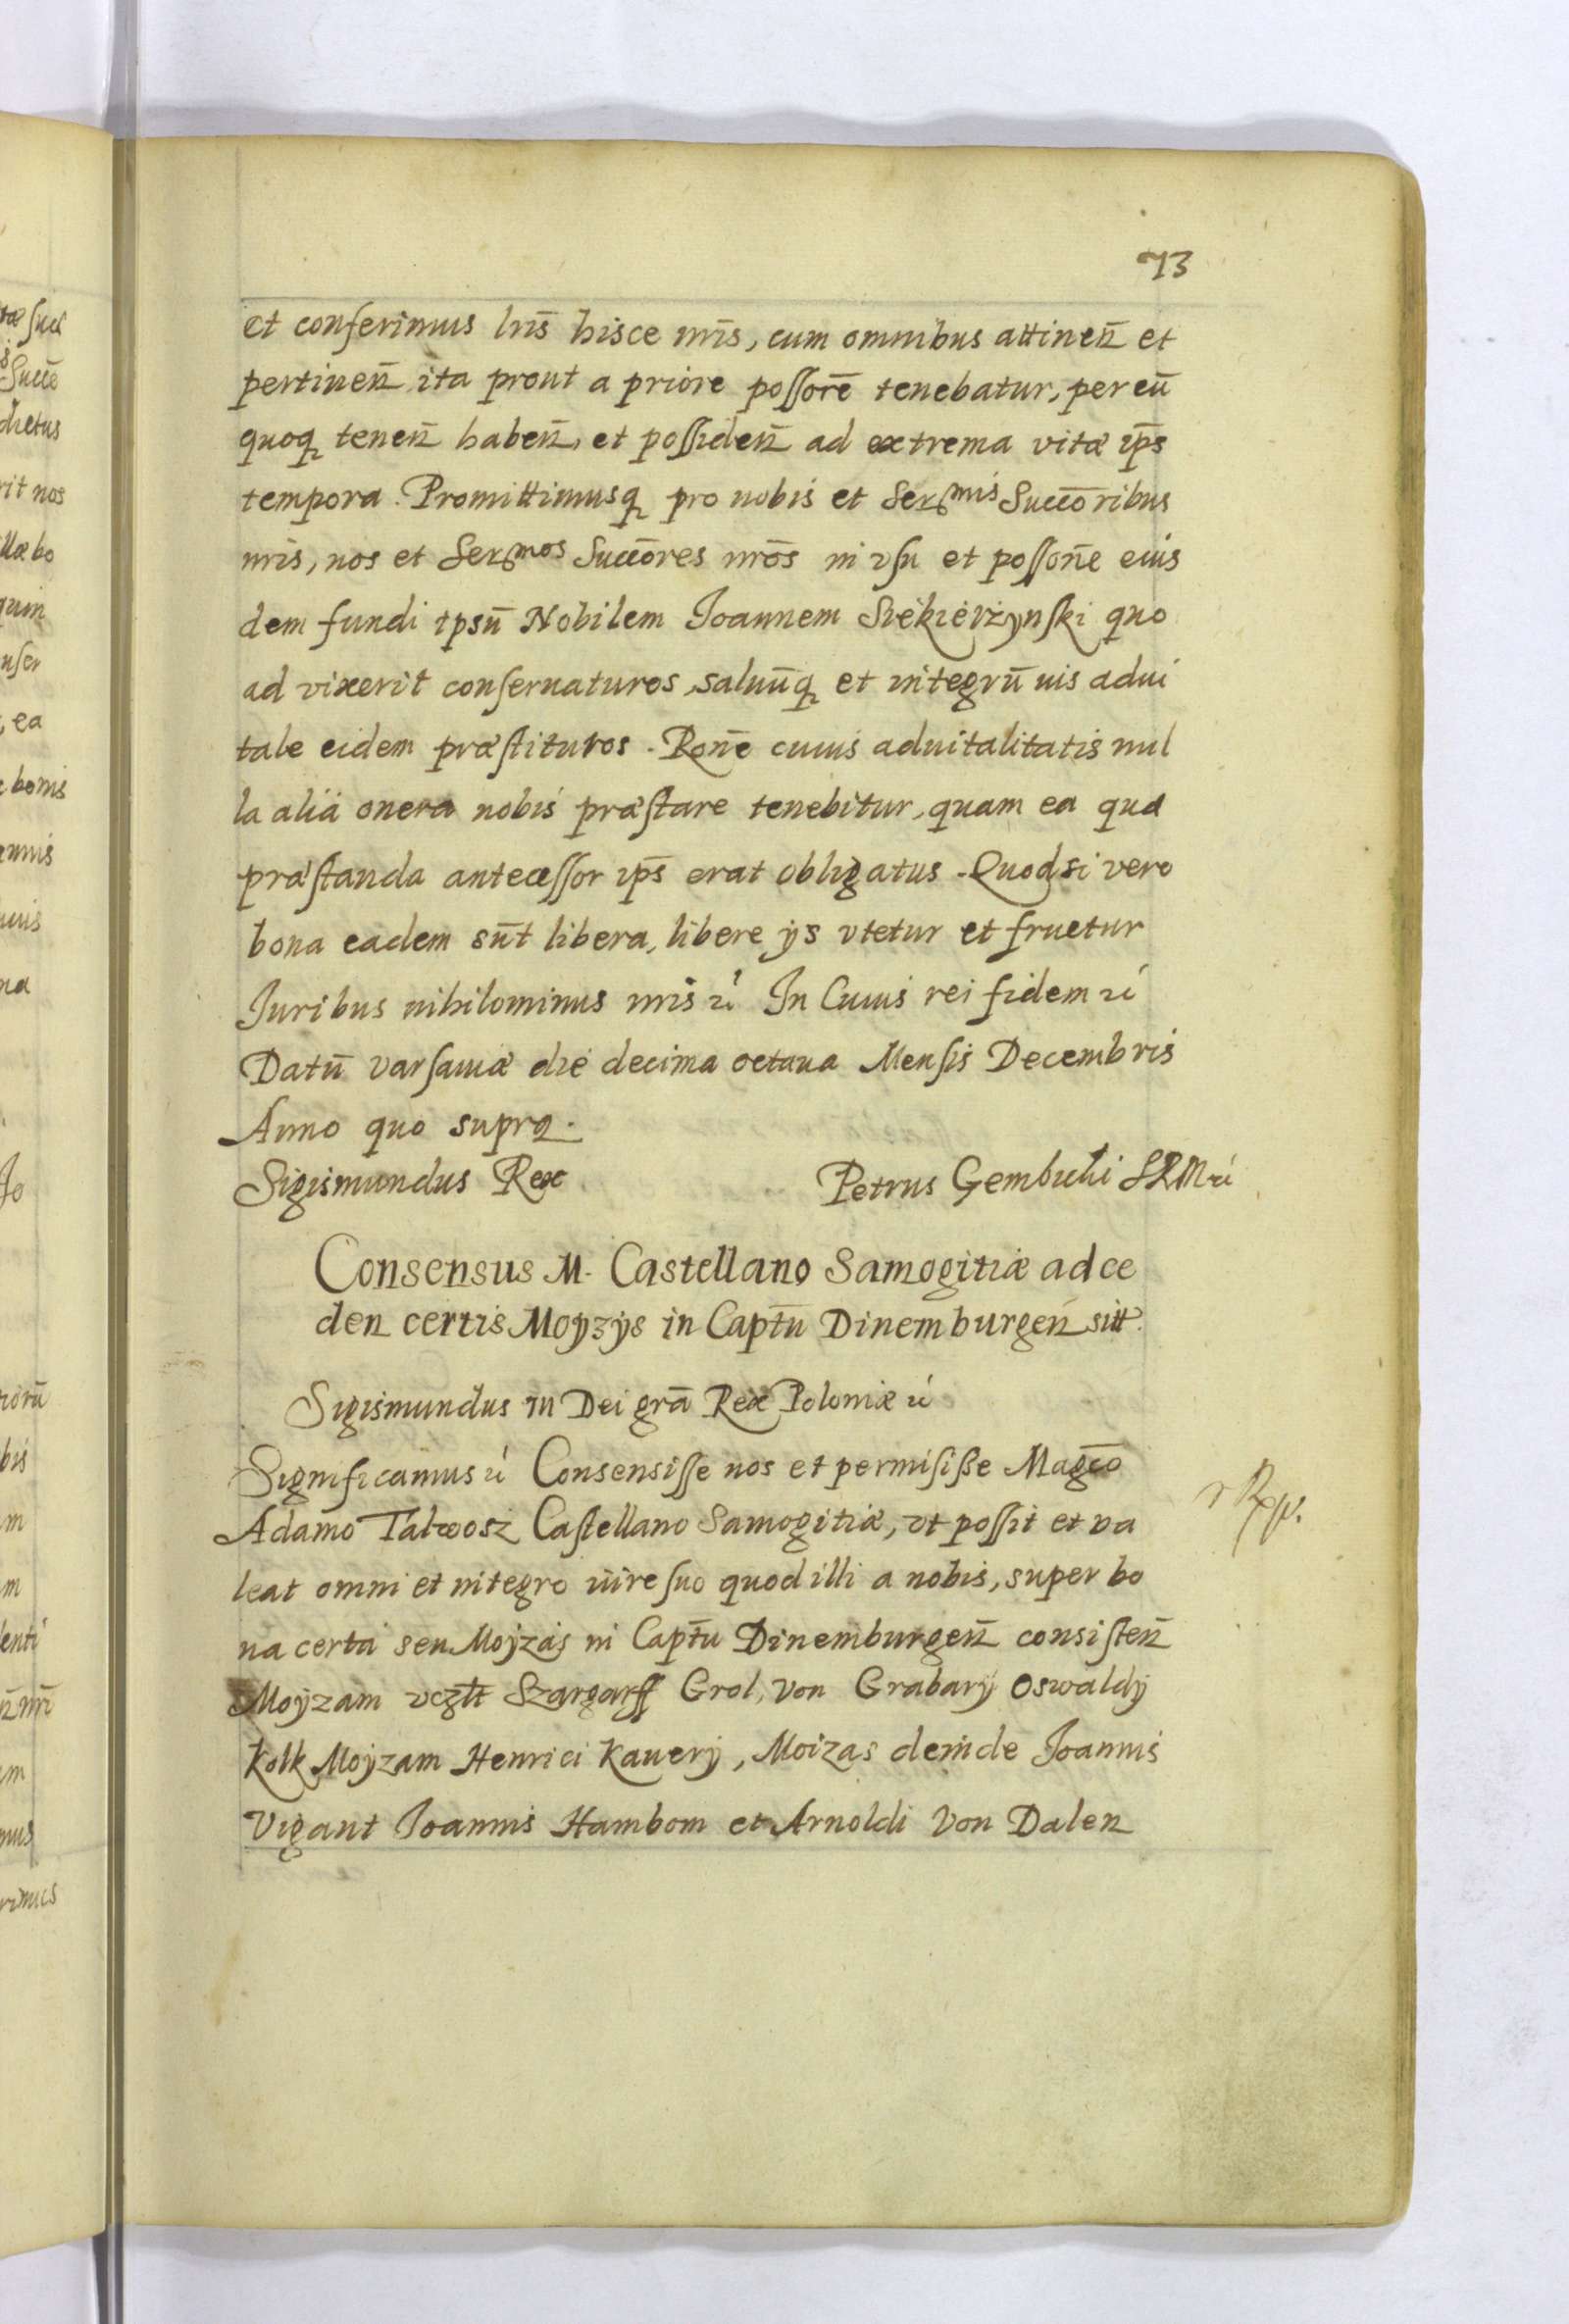 73
et conferimus lrīs hisce nrīs, cum omnibus attineñ et
pertineñ ita prout a priore poſſorē tenebatur, per eū
quoq teneñ habeñ, et poſſideñ ad extrema vitæ ip̄s
tempora. Promittimusq pro nobis et Sermis Succōribus
nrīs, nos et Sermos Succōres nrōs in vſu et poſſoñe eius
dem fundi ipsū Nobilem Joannem Siekierżynſki quo
ad vixerit conſeruaturos, saluūq et integrū ius adui
tale eidem præſtituros. Roñe cuius aduitalitatis nul
la alia onera nobis præſtare tenebitur, quam ea quæ
præſtanda anteceſſor ip̄s erat obligatus. Quodsi vero
bona eadem sūt libera, libere ijs vtetur et fruetur
Juribus nihilominus nrīs ꝛć In Cuius rei fidem ꝛć
Datū Varſauiæ die decima octaua Menſis Decembris
Anno quo supra.
Sigismundus Rex Petrus Gembicki SRM ꝛć
Consensus M. Castellano Samogitiæ ad ce
den certis Moyzys in Captū Dinemburgeñ sitt.
Sigismundus III Dei grā Rex Poloniæ ꝛć
Significamus ꝛć Consensiſſe nos et permiſiſſe Magco
Adamo Talwosz Caſtellano Samogitiæ, vt poſſit et va
leat omni et integro iure ſuo quod illi a nobis, super bo
na certa seu Moyzas in Captū Dinemburgeñ consiſteñ
Moyzam vczlt Szargarff Grol, von Grabary Oswaldy
Kolk Moyzam Henrici Kauery, Moizas deinde Joannis
Vigant Joannis Hambom et Arnoldi Von Dalen